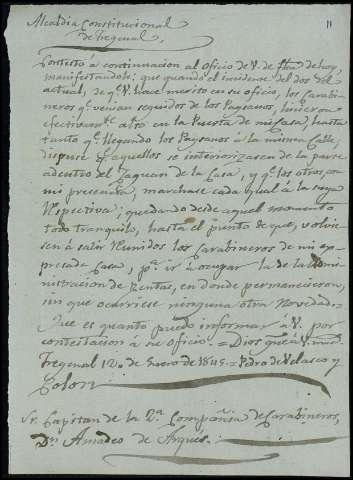 11
Alcaldia Constitucional
de Fregenal.
Contesto á continuacion al oficio de V. de fha de hoy,
manifestandole: que quando el incidente del dos del
actual, de qe. V. hace merito en su oficio, los Carabi-
neros qe. venian seguidos de los Paysanos, hicieron
efectivamte. alto en la Puerta de mi Casa, hasta
tanto qe. llegando los Paysanos á la misma Calle,
dispuse qe. aquellos se interiorizasen de la parte
adentro del Zaguan de la Casa, y qe. los otros, con
mi presencia, marchase cada qual á la suya
respectiva; quedando desde aquel momento
todo tranquilo, hasta el punto de que, volvie-
sen á salir reunidos los Carabineros de mi ex-
presada Casa, pa. ir á ocupar la de la Admi-
nistracion de Rentas, en donde permanecieron,
sin que ocurriese ninguna otra novedad.=
Que es quanto puedo informar á V. por
contestacion á su oficio.=Dios gue. á V. m.s a.s
Fregenal 12 de Enero de 1845.=Pedro de Velasco y
Colon
Sr. Capitan de la 2a. Compañia de Carabineros,
Dn. Amadeo de Arques.